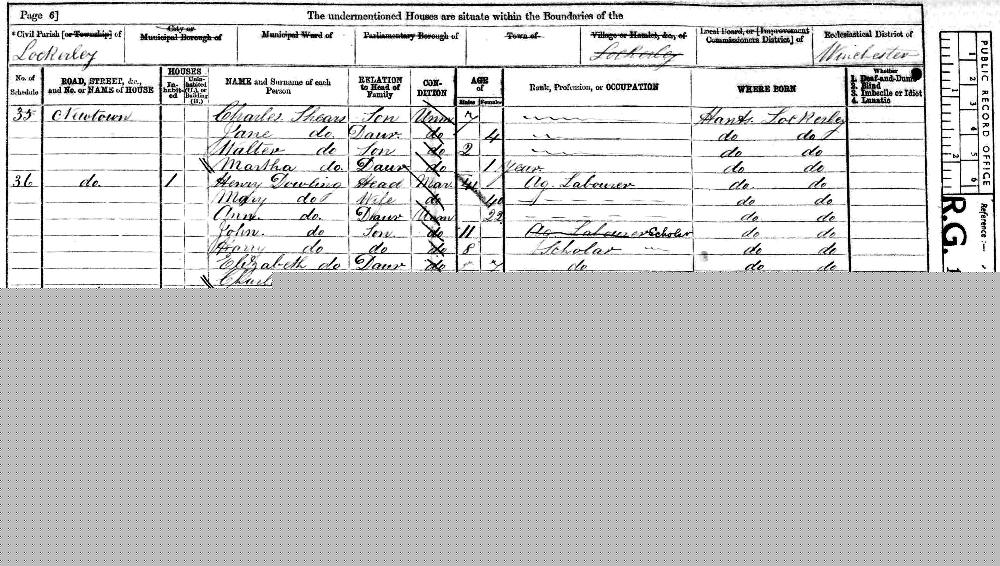 Page 6] The undermentioned Houses are situate within the Boundaries of the
*Civil Parish [or Township] of City or Municipal Borough of Municipal Ward of Parliamentary Borough of Town of Village or Hamlet, &c., of Local Board, or [Improvement Commissioners District] of Ecclesiastical District of
Lockerley Lockerley Winchester
No. of Schedule ROAD, STREET, &c., and No. or NAME of HOUSE HOUSES Inhabited Uninhabited (U.), or Building (B.) NAME and Surname of each Person RELATION to Head of Family CONDITION AGE of Males Females Rank, Profession, or OCCUPATION WHERE BORN Whether 1. Deaf-and-Dumb 2. Blind 3. Imbecile or Idiot 4. Lunatic
35 Newtown Charles Shears Son Unm 7 Hants. Lockerley
Jane do. Daur do 4 do do
Walter do Son do 2 do do
Martha do. Daur do 1 year do do
36 do. 1 Henry Dowling Head Mar. Ag. Labourer do do
Mary do Wife do 40 do do
Ann do. Daur Unm 22 do do
John. do Son. do 11 Ag. Labourer Scholar do do
Harry do do do 8 Scholar do do
Elizabeth do Daur do 7 do do do
PUBLIC RECORD OFFICE
1 2 3 4 5 6
1 2
Reference :-
R.G.